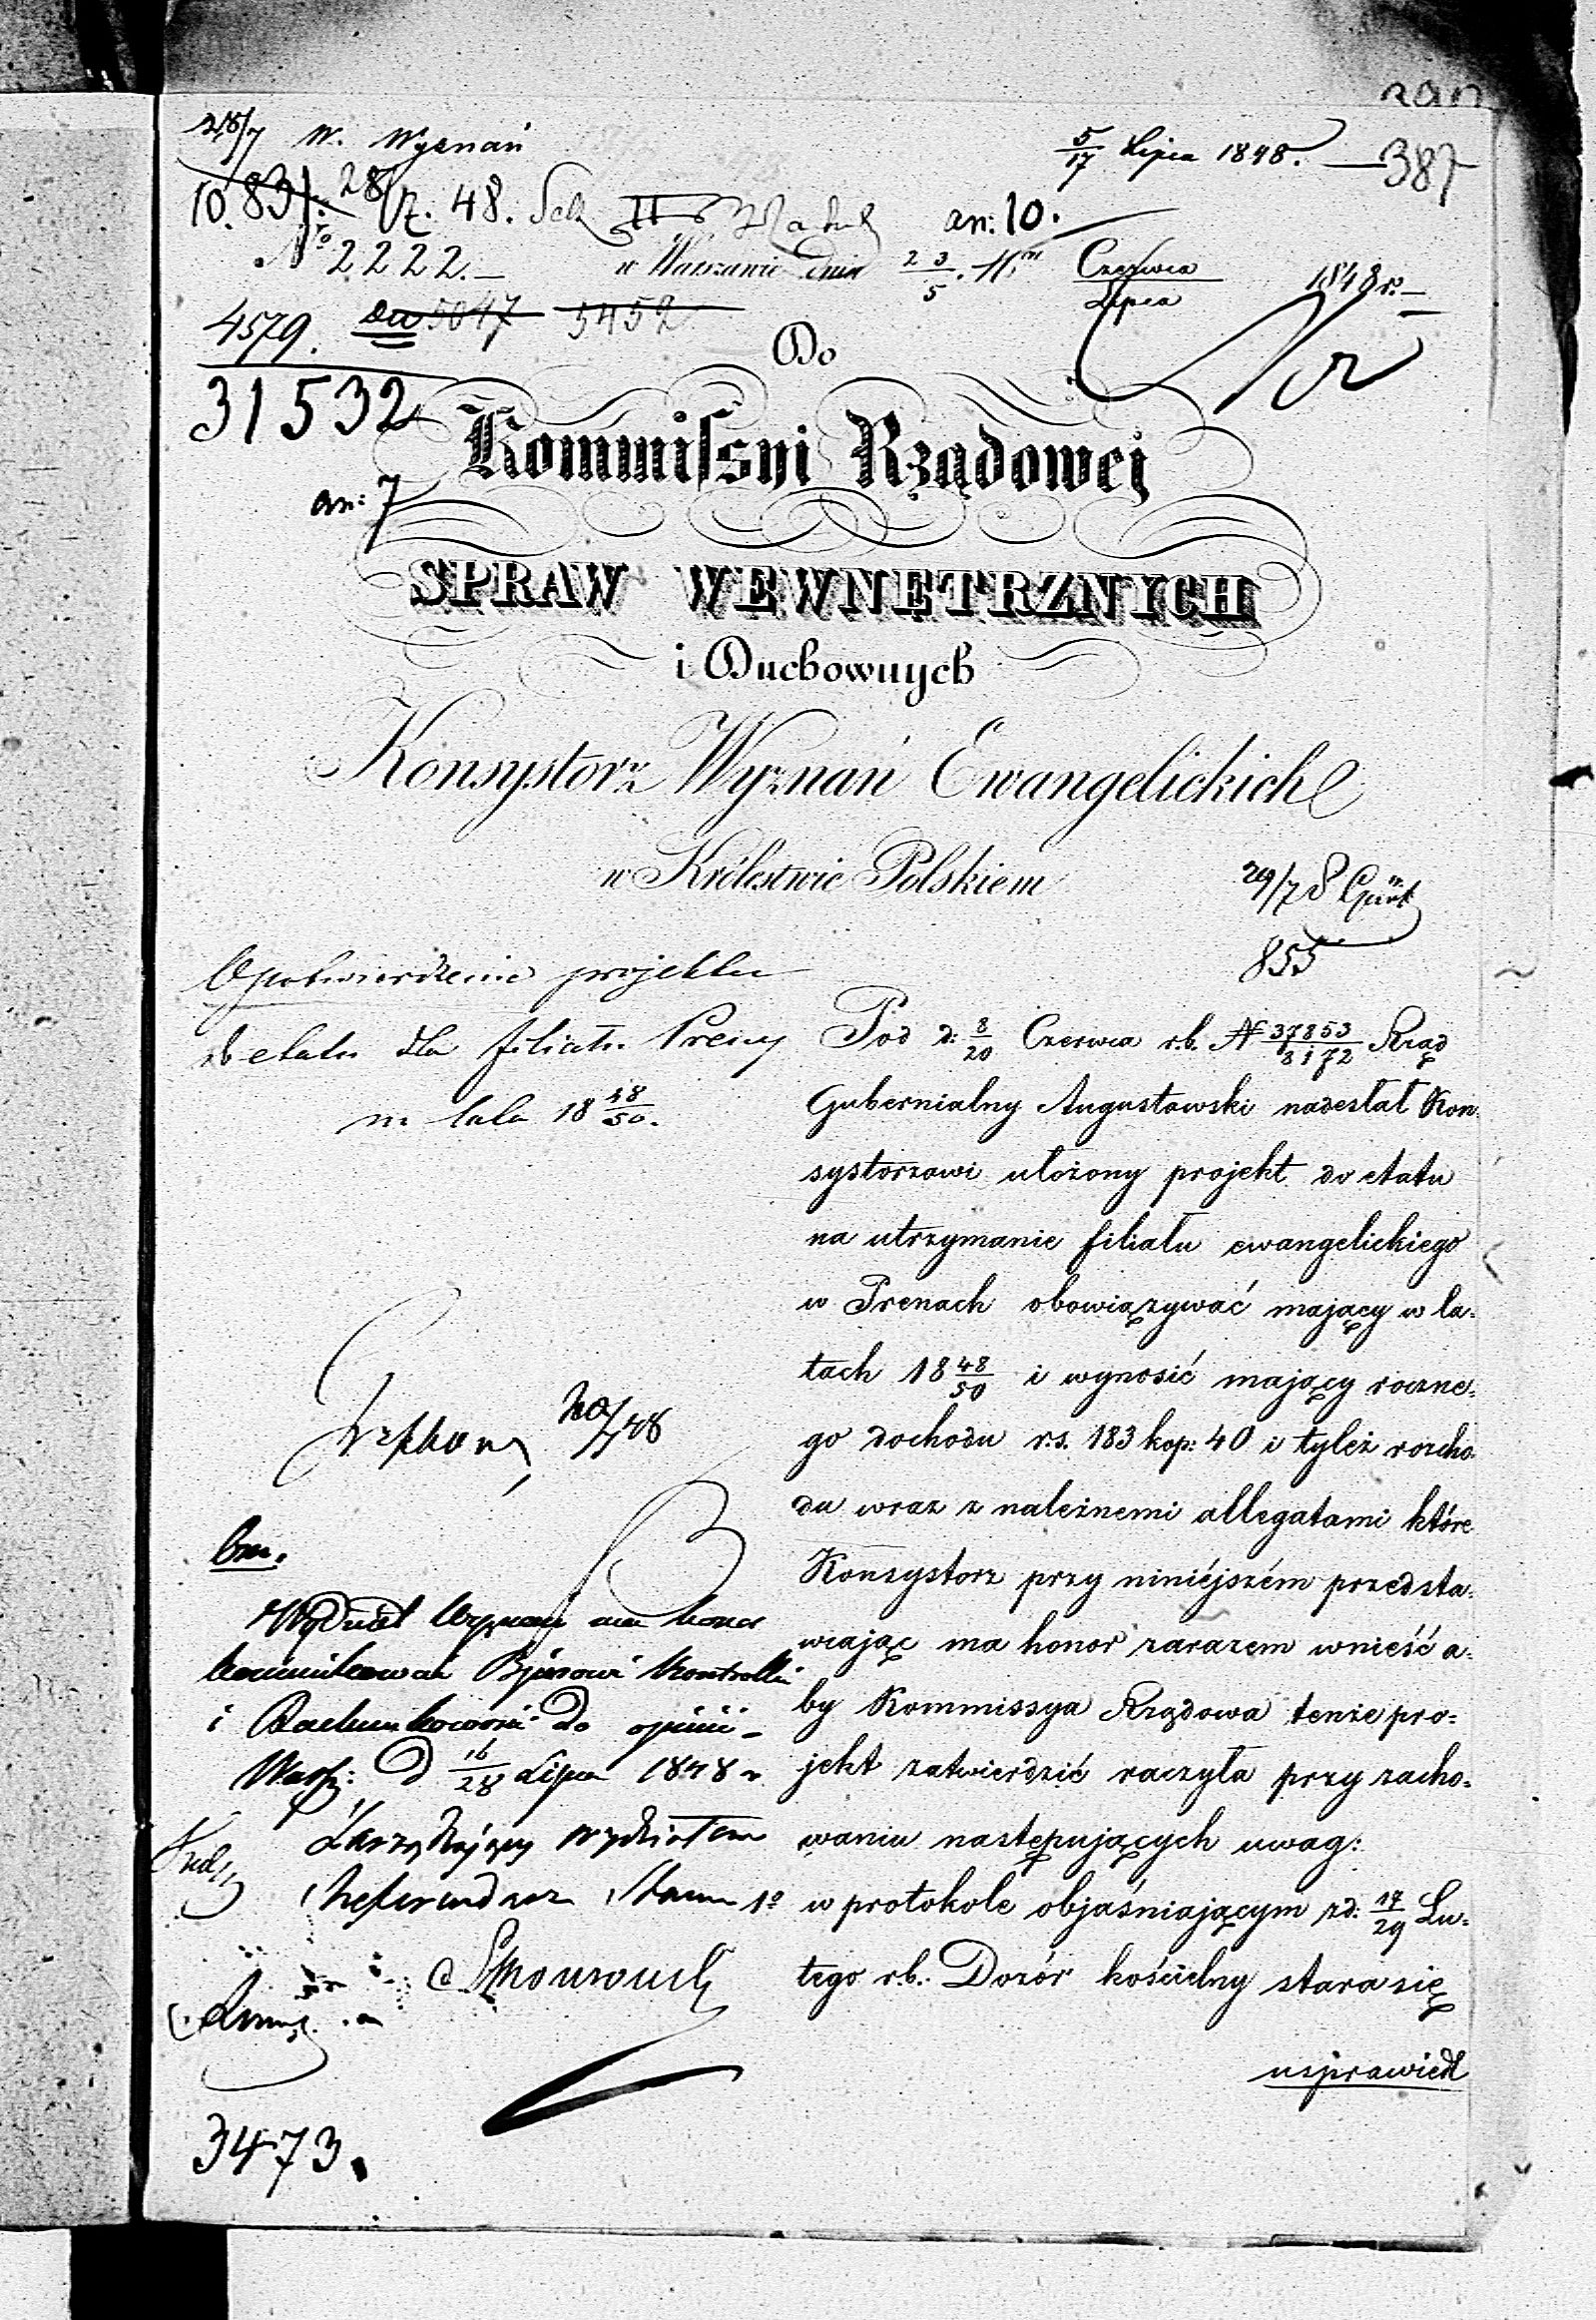 28/7 W. Wyznań
5/17 Lipca 1848.
387
10.831. 28/7. 48.
an: 10.
No 2222.
w Warszawie dnia 23/5 Czerwca/Lipca 1848 r.
4579. 5047 5452
31532
Do
Kommissyi Rządowej
an: 7
SPRAW WEWNĘTRZNYCH
i Duchownych
Konsystorz Wyznań Ewangelickich
w Królestwie Polskiem
29/7
855
O potwierdzenie projektu
do etatu dla filiału Preny
na lata 18 48/50.
Pod d: 8/20 Czerwca r.b. N 37853/8172 Rząd
Gubernialny Augustowski nadesłał Kon-
systorzowi ułożony projekt do etatu
na utrzymanie filiału ewangelickiego
w Prenach obowiązywać mający w la-
tach 18 48/50 i wynosić mający roczne-
go dochodu r.s. 183 kop: 40 i tyleż rozcho-
du wraz z należnemi allegatami które
Konsystorz przy niniéjszém przedsta-
wiając ma honor zarazem wnieść a-
by Kommissya Rządowa tenże pro-
jekt zatwierdzić raczyła przy zacho-
waniu następujących uwag:
1o w protokole objaśniającym z d: 17/29 Lu-
tego r.b. Dozór kościelny stara się
usprawiedl
bm.
Wydział Wyznań ma honor
kommunikować Bjurowi Kontrolli
i Rachunkowości do opinii
Warsz: D 16/28 Lipca 1848 r
Zarządzający Wydziałem
Referendarz Stanu
3473.